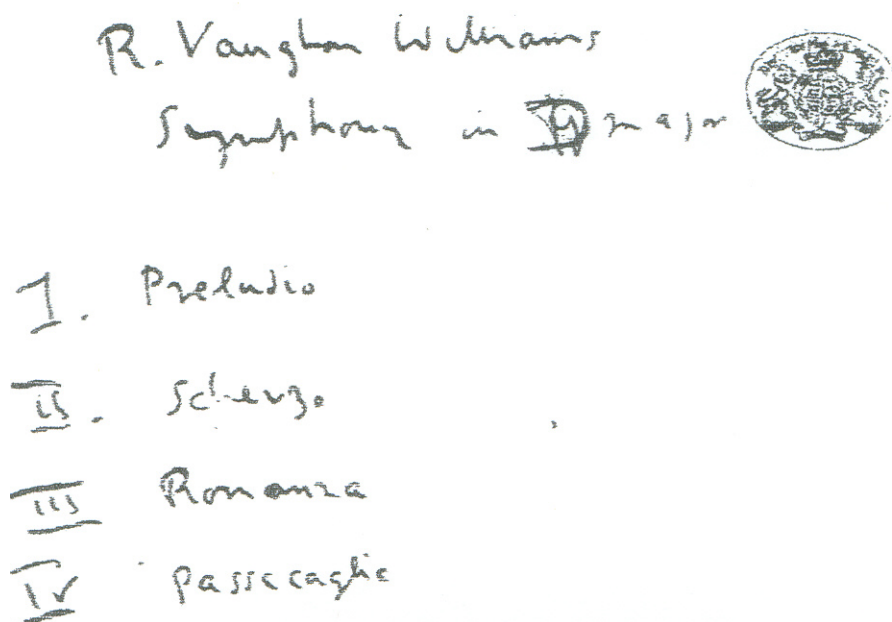 R. Vaughan Williams
Symphony in D major
I. Preludio
II. Scherzo
III Romanza
IV Passacaglia